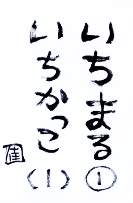 いちまる①
いちかっこ(1)
佳